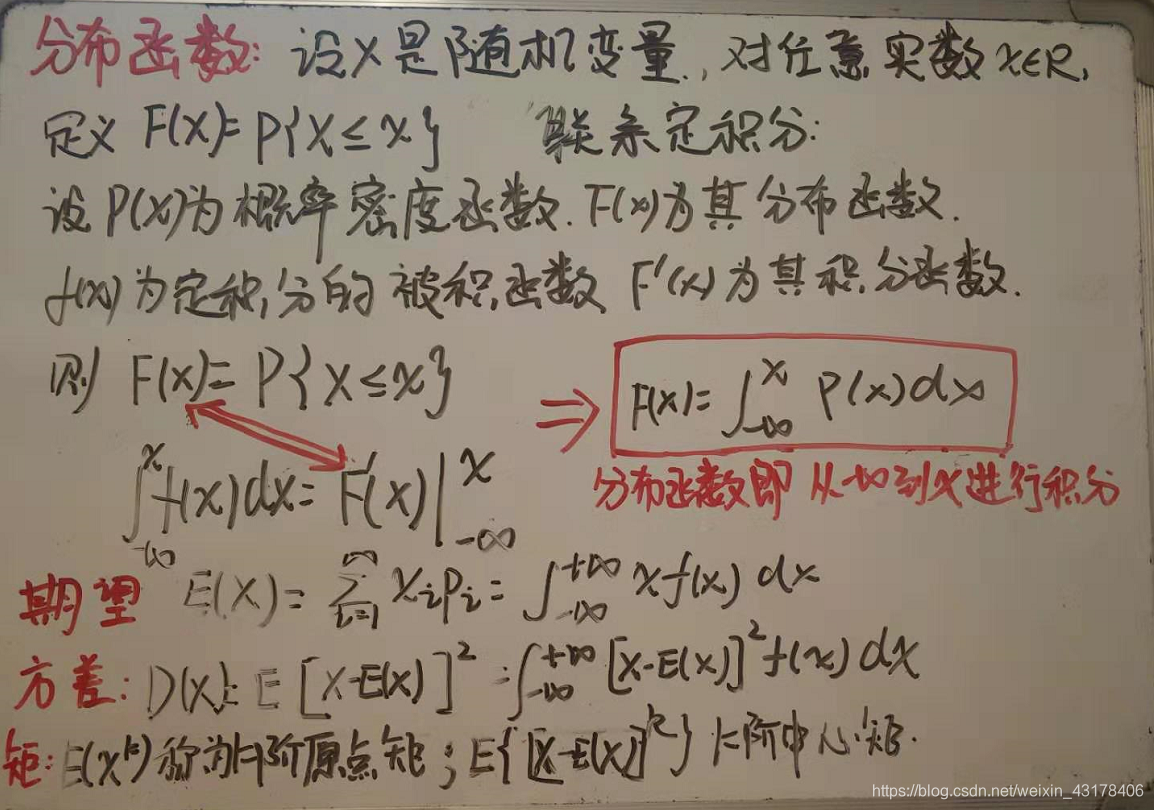 分布函数: 设X是随机变量, 对任意实数x∈R,
定义 F(x)=P{X≤x} 联系定积分:
设P(x)为概率密度函数. F(x)为其分布函数.
f(x)为定积分的被积函数 F'(x)为其积分函数.
则 F(x)=P{X≤x} ⇒ F(x)=∫_{-∞}^{x} P(x)dx
∫_{-∞}^{x} f(x)dx=F'(x)|_{-∞}^{x} 分布函数即从-∞到x进行积分
期望 E(X)=∑_{i=1}^{∞} x_i p_i=∫_{-∞}^{+∞} xf(x)dx
方差: D(X)=E[X-E(X)]²=∫_{-∞}^{+∞} [X-E(X)]² f(x)dx
矩: E(X^k)称为k阶原点矩; E{[X-E(X)]^k} k阶中心矩.
https://blog.csdn.net/weixin_43178406